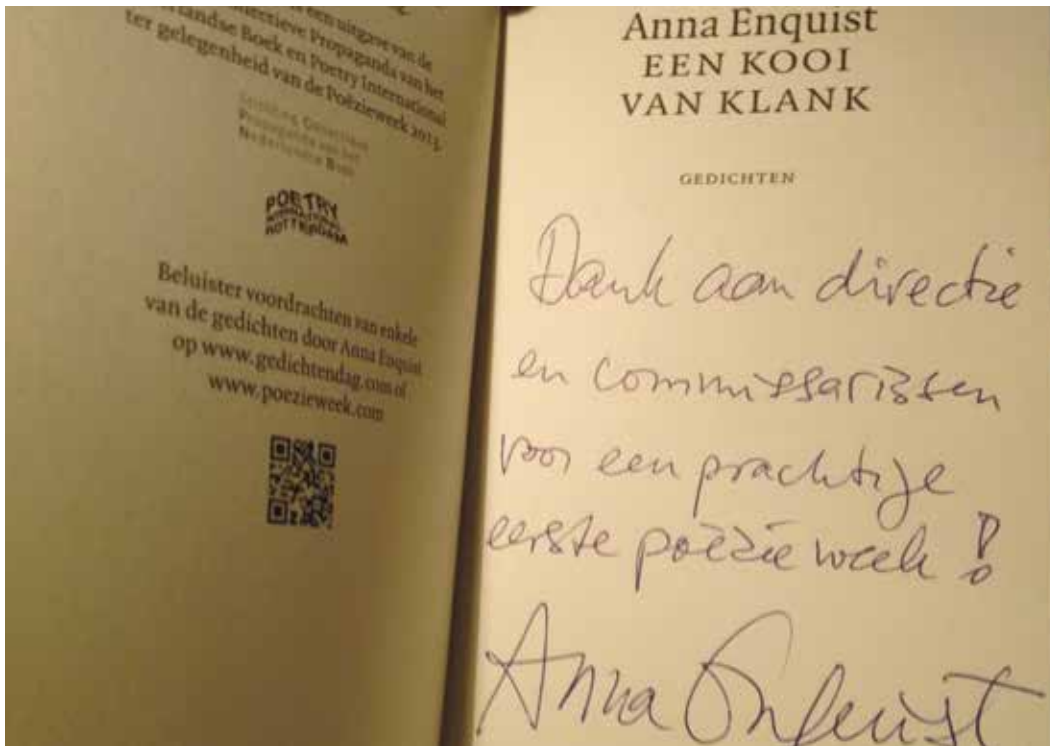 een uitgave van de
ectieve Propaganda van het
rlandse Boek en Poetry International
ter gelegenheid van de Poëzieweek 2013.
Stichting Collectieve
Propaganda van het
Nederlandse Boek
POETRY
INTERNATIONAL
ROTTERDAM
Beluister voordrachten van enkele
van de gedichten door Anna Enquist
op www.gedichtendag.com of
www.poezieweek.com
Anna Enquist
EEN KOOI
VAN KLANK
GEDICHTEN
Dank aan directie
en commissarissen
voor een prachtige
eerste poëzieweek!
Anna Enquist